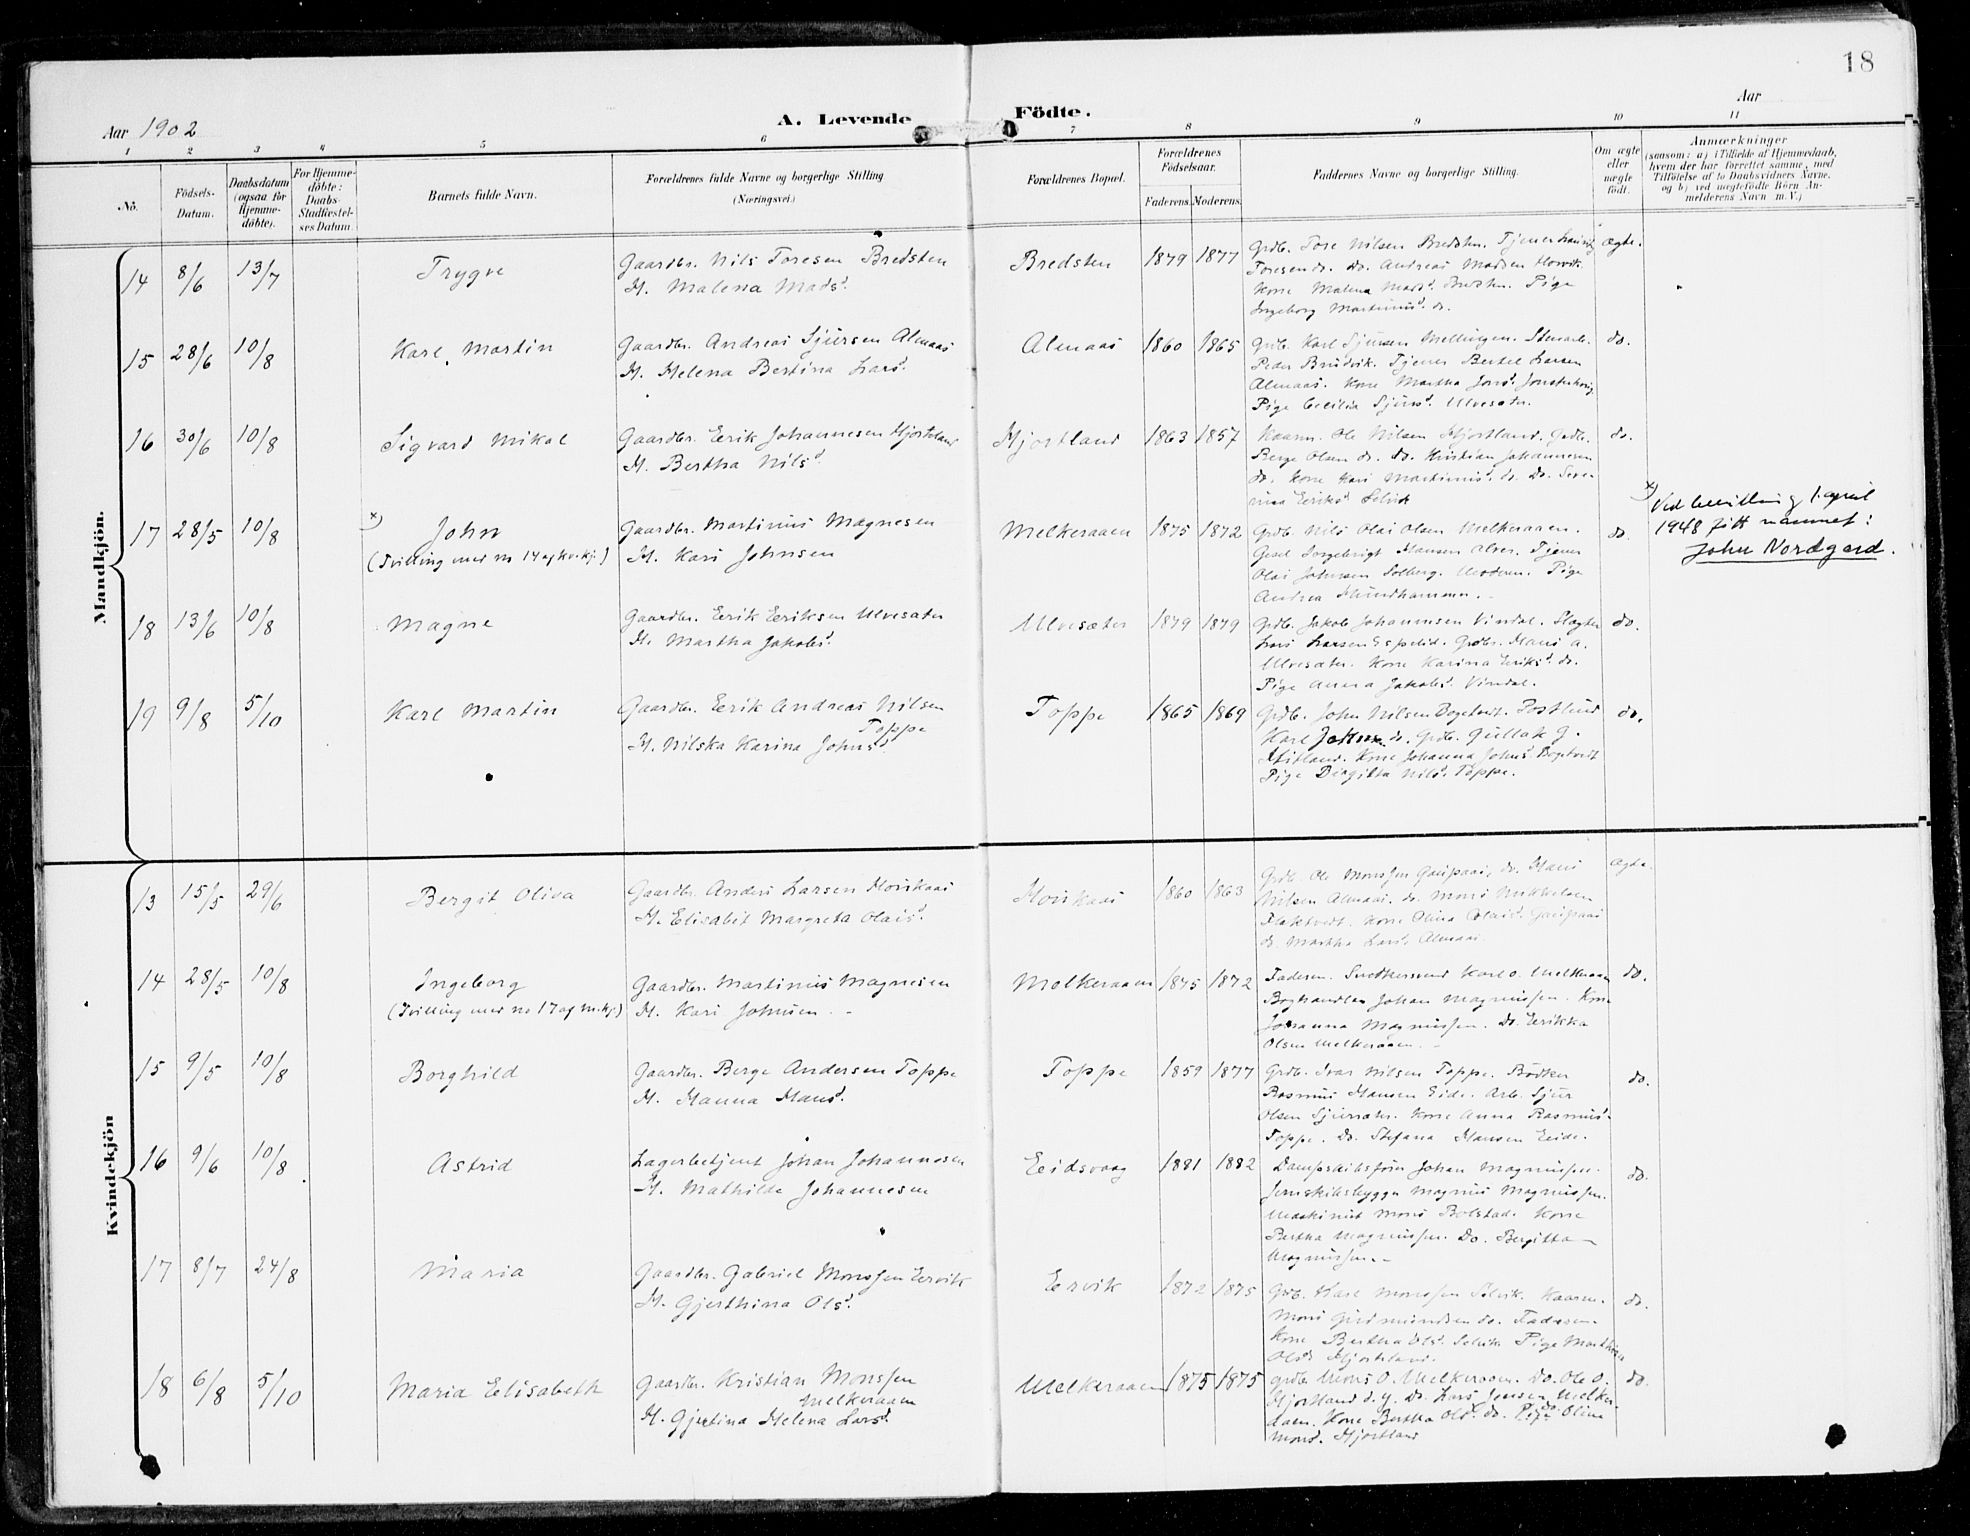 18
Aar 1902
A. Levende Födte.
Aar
1 2 3 4 5 6 7 8 9 10 11
No.
Födsels-Datum.
Daabsdatum (ogsaa for Hjemme-döbte).
For Hjemme-döbte: Daabs-Stadfæstel-ses Datum.
Barnets fulde Navn.
Forældrenes fulde Navne og borgerlige Stilling (Næringsvei.)
Forældrenes Bopæl.
Forældrenes Födselsaar.
Faderens. Moderens.
Faddernes Navne og borgerlige Stilling.
Om ægte eller uægte födt.
Anmærkninger
(saasom: a) i Tilfælde af Hjemmedaab,
hvem der har forrettet samme, med
Tilföielse af to Daabsvidners Navne,
og b) ved uægtefödte Börn An-
melderens Navn m. V.)
Mandkjön.
14 8/6 13/7 Trygve Gaardbr. Nils Toresen Bredsten Bredsten 1879 1877 Grdb. Tore Nilsen Bredsten. Tjener ægte.
H. Malena Mads d. Toresen do. do. Andreas Madsen
Kone Malena Mads d. Bredsten. Pige
Ingeborg Martinus d. do.
15 28/6 10/8 Karl Martin Gaardbr. Andreas Sjursen Almaas Almaas 1860 1865 Grdb. Karl Sjursen Mellingen. do.
H. Helena Bertina Lars d. Peder Brudvik. Tjener Bertel Larsen
Almaas. Kone Martha Jons d.
Pige Cecilia Sjurs d. Ulvesæter.
16 30/6 10/8 Sigvard Mikal Gaardbr. Eerik Johannesen Hjortland Hjortland 1863 1857 Kaarm. Ole Nilsen Hjortland. Grdb. do.
H. Bertha Nils d. Berge Olsen do. do. Kristian Johannesen
do. Kone Kari Martinus d. do. Do. Seve-
rina Eeriks d. Selvik
17 28/5 10/8 x) John Gaardbr. Martinus Magnesen Melkeraaen 1875 1872 Grdb. Nils Olai Olsen Melkeraaen. do.
(Tvilling med no 14 af kv.kj.) H. Kari Johnsen Gaml. Ingebrigt Hansen Alver. Tjener
Olai Johnsen Solberg. Moderen. Pige
Andrea
x) Ved bevilling 1. april
1948 fått navnet:
John Nordgard.
18 13/6 10/8 Magne Gaardbr. Eerik Eeriksen Ulvesæter Ulvesæter 1879 1879 Grdb. Jakob Johannesen Vindal. Slagter do.
H. Martha Jakobs d. Lars Larsen Espelid. Grdbr. Hans A.
Ulvesæter. Kone Karina Eeriks d. do.
Pige Anna Jakobs d. Vindal.
19 9/8 5/10 Karl Martin Gaardbr. Eerik Andreas Nilsen Toppe 1865 1869 Grdb. John Nilsen do.
Toppe Karl Johns. do. Grdb. Gullak G.
H. Nilska Karina Johns d. Kone Johanna Johns d.
Pige Birgitta Nils d. Toppe.
Kvindekjön
13 15/5 29/6 Bergit Oliva Gaardbr. Anders Larsen Hovikaas Hovikaas 1860 1863 Grdb. Ole Monssen Gaupaas, do. Hans ægte.
H. Elisabet Margreta Olais d. Nilsen Almaas. do. Mons Mikkelsen
Flaktvedt. Kone Olina Olais d. Gaupaas
do. Martha Lars d. Almaas.
14 28/5 10/8 Ingeborg Gaardbr. Martinius Magnesen Melkeraaen 1875 1872 Faderen. Snedkersvend Karl O. Melkeraaen do.
(Tvilling med no 17 af m.kj.) H. Kari Johnsen Boghandler Johan Magnussen. Kone
Johanna Magnussen. Do. Eerikka
Olsen Melkeraaen.
15 9/5 10/8 Borghild Gaardbr. Berge Andersen Toppe Toppe 1859 1877 Grdb. Ivar Nilsen Toppe. Bödker do.
H. Hanna Hans d. Rasmus Hansen Eide. Arb. Sjur
Olsen Sjursæter. Kone Anna Rasmus d.
Toppe. Do. Stefana Hansen Eide.
16 9/6 10/8 Astrid Lagerbetjent Johan Johannesen Eidsvaag 1881 1882 Dampskibsförer Johan Magnussen. do.
H. Mathilde Johannesen Jernskibsbygger Magnus Magnussen.
Maskinist Mons Bolstad. Kone
Bertha Magnussen. Do. Bergitta
Magnussen.
17 8/7 24/8 Maria Gaardbr. Gabriel Monssen Eervik Eervik 1872 1875 Grdb. Karl Monssen Selvik. Kaarm. do.
H. Gjerthina Ols d. Mons Gudmundsen do. Faderen.
Kone Bertha Ols d. Selvik Pige Marthina
Ols d. Hjortland.
18 6/8 5/10 Maria Elisabeth Gaardbr. Kristian Monssen Melkeraaen 1875 1875 Grdb. Mons O. Melkeraaen. Do. Ole O. do.
Melkeraaen Hjortland d. y. Do. Lars Jensen Melke-
H. Gjertina Helena Lars d. raaen. Kone Bertha Ols d. do. Pige Olina
Mons d. Hjortland